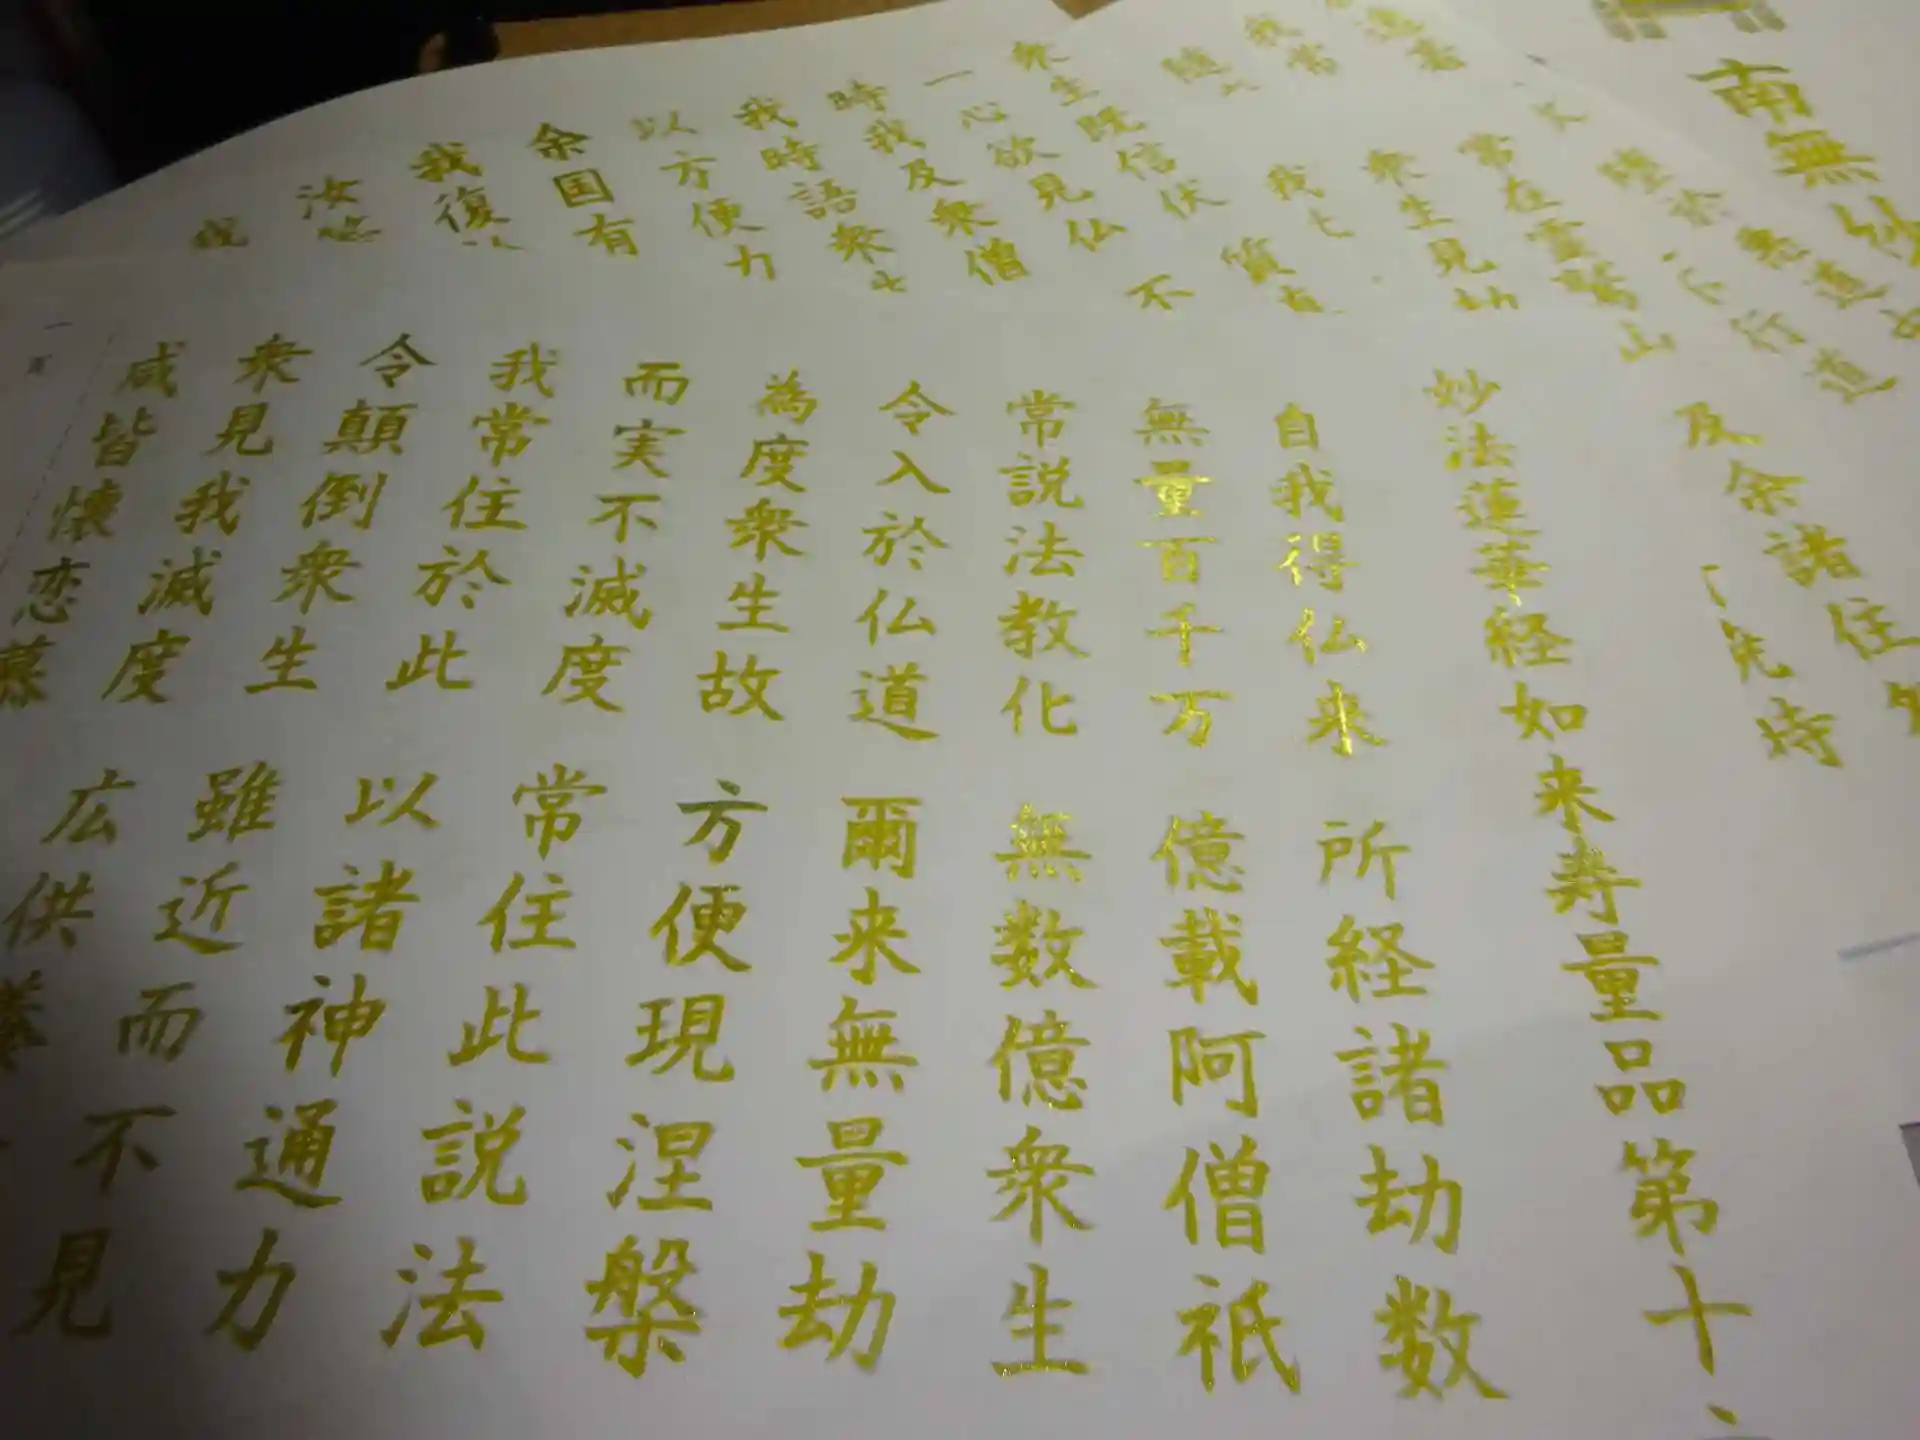 妙法蓮華経如来寿量品第十
自我得仏来 所経諸劫数
無量百千万 億載阿僧祇
常説法教化 無数億衆生
令入於仏道 爾来無量劫
為度衆生故 方便現涅槃
而実不滅度 常住此説法
我常住於此 以諸神通力
令顛倒衆生 雖近而不見
衆見我滅度 広供養
咸皆懐恋慕
衆生既信伏
一心欲見仏
時我及衆僧
我時語衆
以方便力
余国有
我復
汝
質
不
我
衆生見劫
常在霊鷲山
及余諸住
南無妙
行道